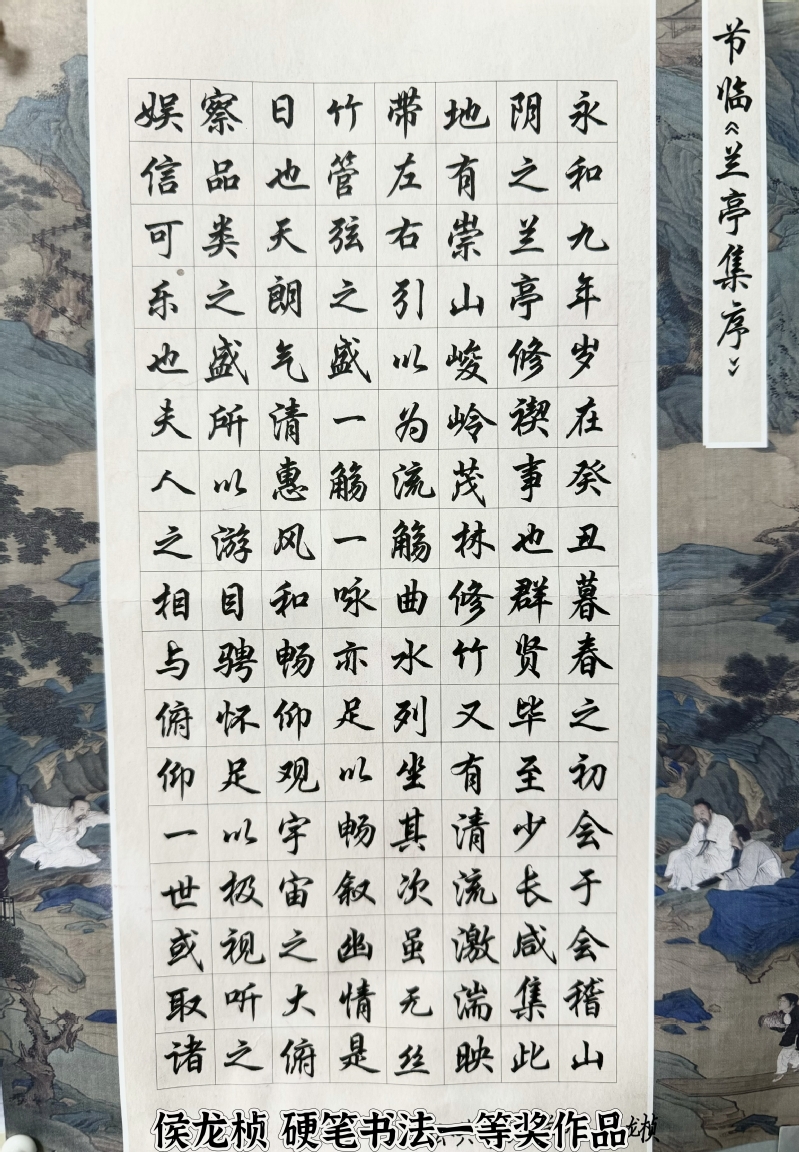 节临《兰亭集序》
永和九年岁在癸丑暮春之初会于会稽山
阴之兰亭修禊事也群贤毕至少长咸集此
地有崇山峻岭茂林修竹又有清流激湍映
带左右引以为流觞曲水列坐其次虽无丝
竹管弦之盛一觞一咏亦足以畅叙幽情是
日也天朗气清惠风和畅仰观宇宙之大俯
察品类之盛所以游目骋怀足以极视听之
娱信可乐也夫人之相与俯仰一世或取诸
侯龙桢 硬笔书法一等奖作品
龙桢